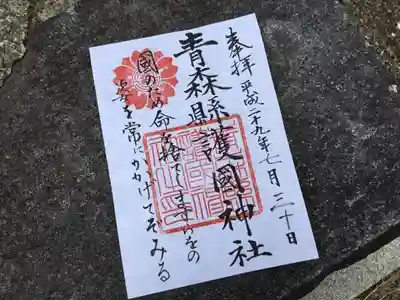 奉拝 平成二十九年七月三十日
青森縣護國神社
國のため命を捨てしますらをの
姿を常にかかげてぞみる